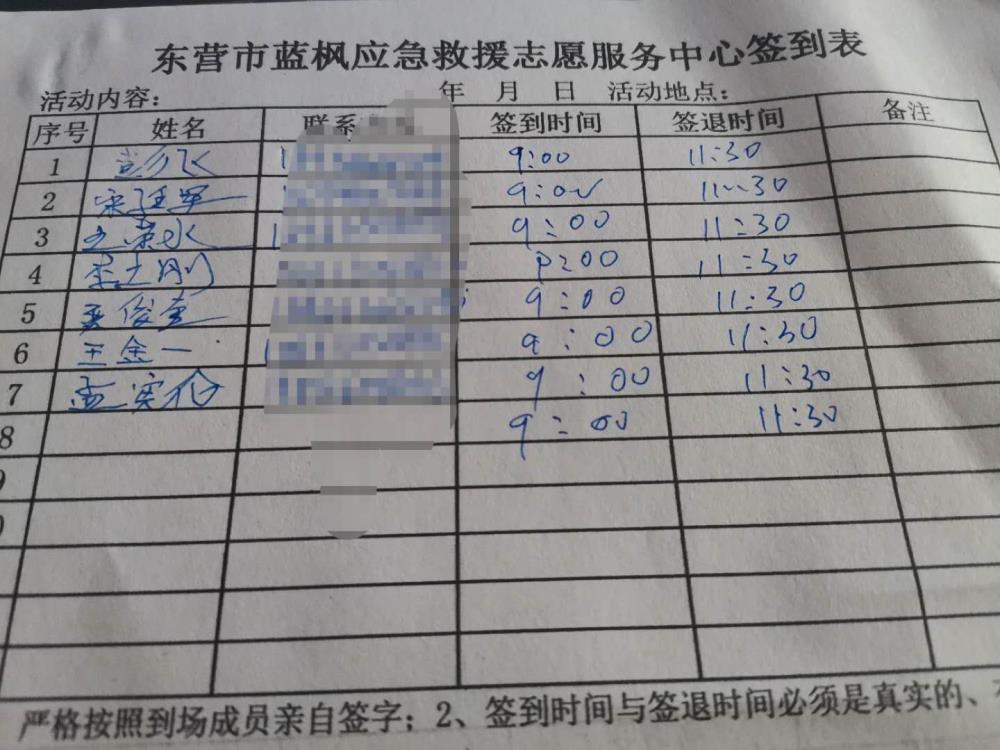 东营市蓝枫应急救援志愿服务中心签到表
活动内容： 年 月 日 活动地点：
序号 姓名 联系 签到时间 签退时间 备注
1 彭飞 9:00 11:30
2 9:00 11:30
3 9:00 11:30
4 李士刚 9:00 11:30
5 9:00 11:30
6 王金一 9:00 11:30
7 孟宪伦 9:00 11:30
8 9:00 11:30
严格按照到场成员亲自签字；2、签到时间与签退时间必须是真实的、